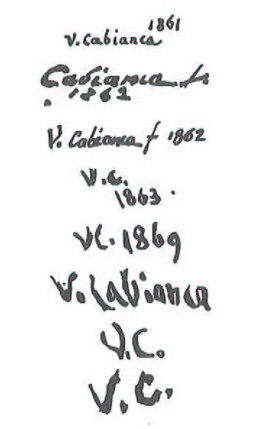 V. Cabianca 1861
Cabianca f.
1862
V. Cabianca f 1862
V.C.
1863.
VC. 1869
V. Cabianca
V.C.
V.C.